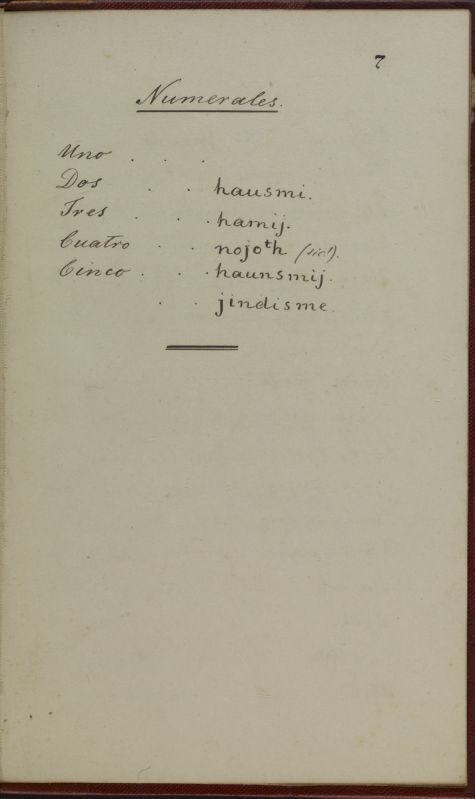 7
Numerales.
Uno . . .
Dos . . hausmi.
Tres . . . hamij.
Cuatro . . nojoth (sic!).
Cinco . . . haunsmij.
. . jindisme.